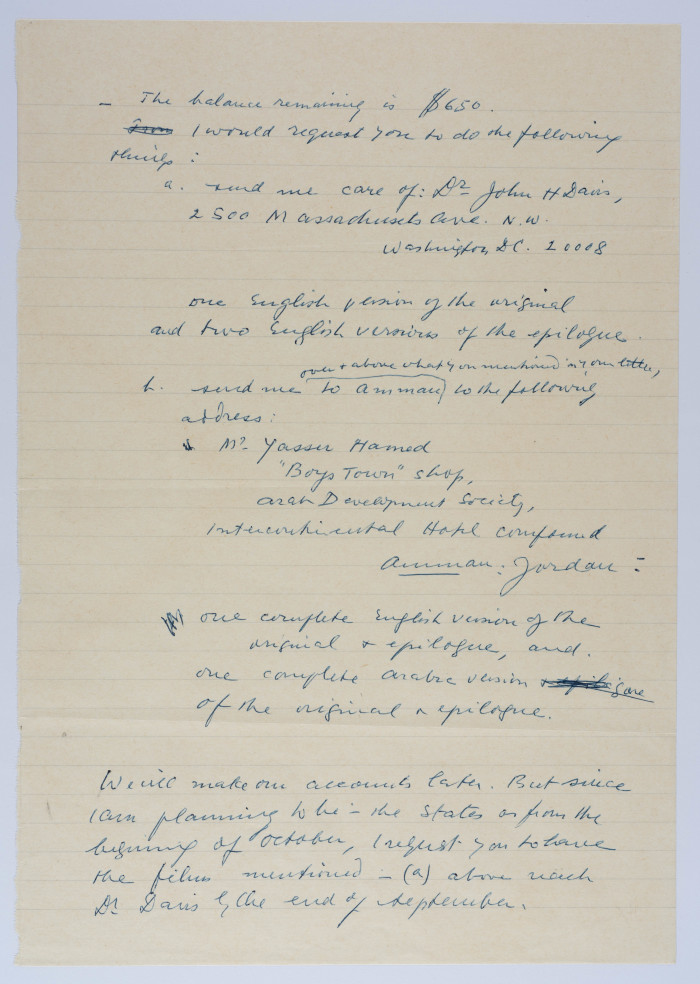 - The balance remaining is $650.
I would request you to do the following
things:
a. send me care of: Dr John H Davis,
2500 Massachusets Ave. N.W.
Washington DC. 20008
one English version of the original
and two English versions of the epilogue.
over & above what you mentioned in your letter,
b. send me to Amman to the following
address:
Mr. Yasser Hamed
"Boys Town" shop,
Arab Development Society,
Intercontinental Hotel compound
Amman: Jordan:
one complete English version of the
original & epilogue, and.
one complete Arabic version
of the original & epilogue.
We will make our accounts later. But since
I am planning to be in the States as from the
begining of October, I request you to have
the films mentioned in (a) above reach
Dr Davis by the end of September.